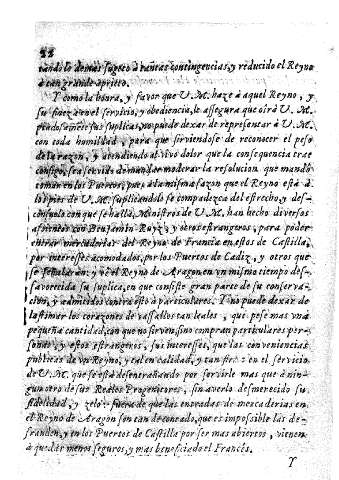 22
tando lo demas sugeto à tantas contingencias, y reducido el Reyno
à tan grande aprieto.
Y como la honra, y favor que V. M. haze à aquel Reyno, y
su fineza en el servicio, y obediencia, le assegura que oirà V. M.
piadosamente sus suplicas, no puede dexar de representar à V. M.
con toda humildad, para que sirviendose de reconocer el peso
de la razon, y atendiendo al vivo dolor que la consequencia trae
consigo, sea servido de mandar moderar la resolucion que mandò
tomar en los Puertos, pues à la misma sazon que el Reyno està à
los pies de V. M. suplicandole se compadezca del estrecho, y des-
consuelo con que se halla, Ministros de V. M. han hecho diversos
assientos con Benjamin Ruyz, y otros estrangeros, para poder
entrar mercadurias del Reyno de Francia en estos de Castilla,
por intereses acomodados, por los Puertos de Cadiz, y otros que
se señalaràn: y vè el Reyno de Aragon en un mismo tiempo des-
favorecida su suplica, en que consiste gran parte de su conserva-
cion, y admitidos contra esto à particulares. Y no puede dexar de
lastimar los corazones de vassallos tan leales, que pese mas una
pequeña cantidad, con que no sirven, sino compran particulares per-
sonas, y estos estrangeros, sus intereses, que las conveniencias
publicas de un Reyno, y tal en calidad, y tan fino en el servicio
de V. M. que se està desentrañando por servirle mas que à nin-
guno otro de sus Reales Progenitores, sin averlo desmerecido su
fidelidad, y zelo: fuera de que las entradas de mercaderias en
el Reyno de Aragon son tan de contado, que es impossible las de-
frauden, y en los Puertos de Castilla por ser mas abiertos, vienen
à quedar menos seguros, y mas beneficiado el Francès.
Y